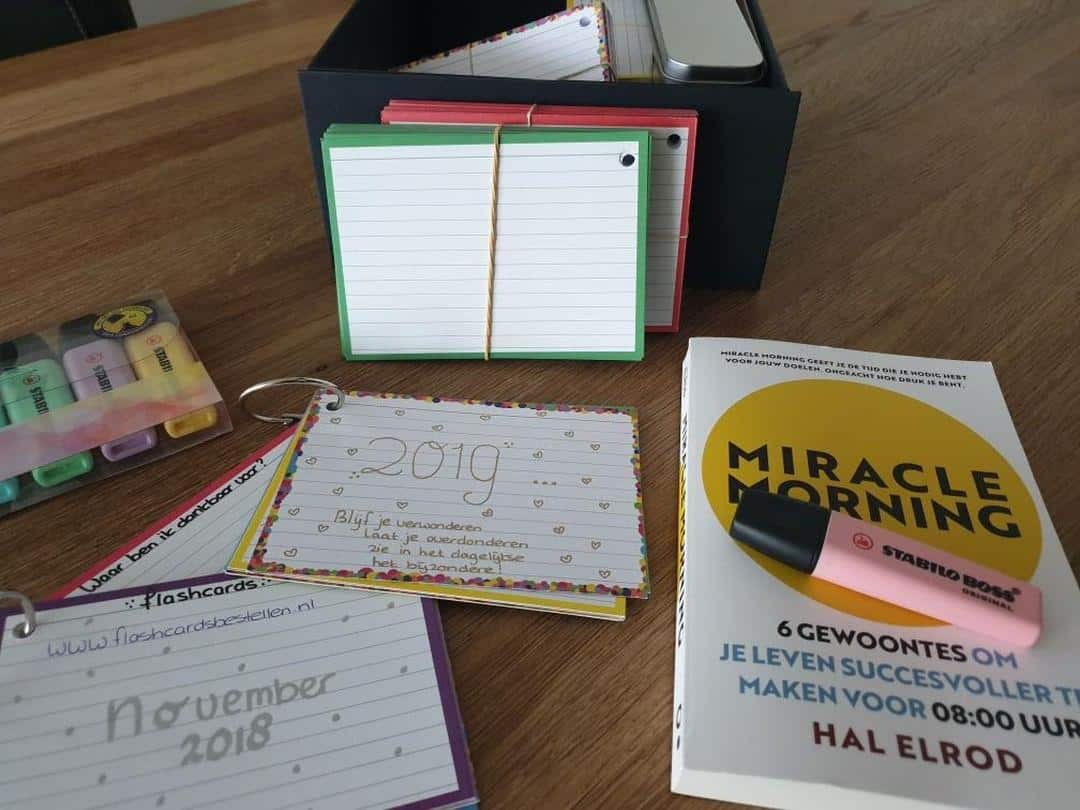 STABILO
STABILO
STABI
2019 ...
Blijf je verwonderen
laat je overdonderen
zie in het dagelijkse
het bijzondere!
Waar ben ik dankbaar voor?
flashcards:
www.flashcardsbestellen.nl
November
2018
MIRACLE MORNING GEEFT JE DE TIJD DIE JE NODIG HEBT
VOOR JOUW DOELEN, ONGEACHT HOE DRUK JE BENT.
MIRACLE
MORNING
STABILO BOSS
ORIGINAL
6 GEWOONTES OM
JE LEVEN SUCCESVOLLER TE
MAKEN VOOR 08:00 UUR
HAL ELROD